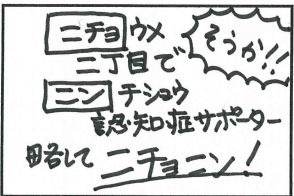 ニチョウメ
二丁目で
そうか!!
ニンチショウ
認知症サポーター
略して ニチョニン!